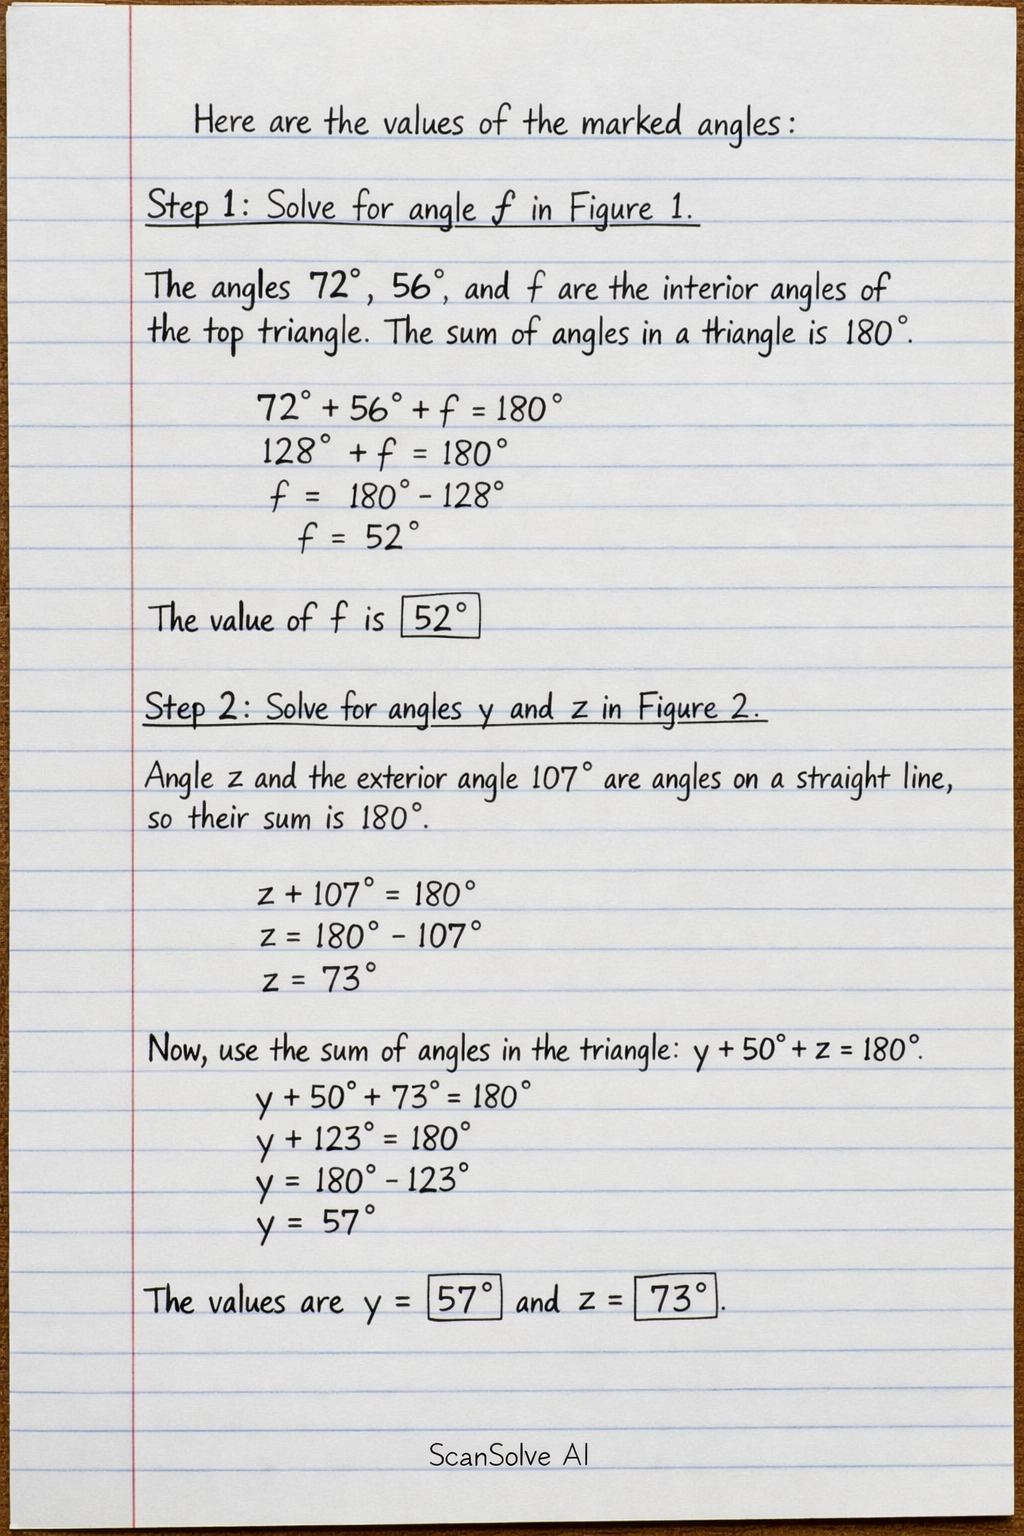 Here are the values of the marked angles:
Step 1: Solve for angle f in Figure 1.
The angles 72°, 56°, and f are the interior angles of
the top triangle. The sum of angles in a triangle is 180°.
72° + 56° + f = 180°
128° + f = 180°
f = 180° - 128°
f = 52°
The value of f is 52°
Step 2: Solve for angles y and z in Figure 2.
Angle z and the exterior angle 107° are angles on a straight line,
so their sum is 180°.
z + 107° = 180°
z = 180° - 107°
z = 73°
Now, use the sum of angles in the triangle: y + 50° + z = 180°.
y + 50° + 73° = 180°
y + 123° = 180°
y = 180° - 123°
y = 57°
The values are y = 57° and z = 73°.
ScanSolve AI